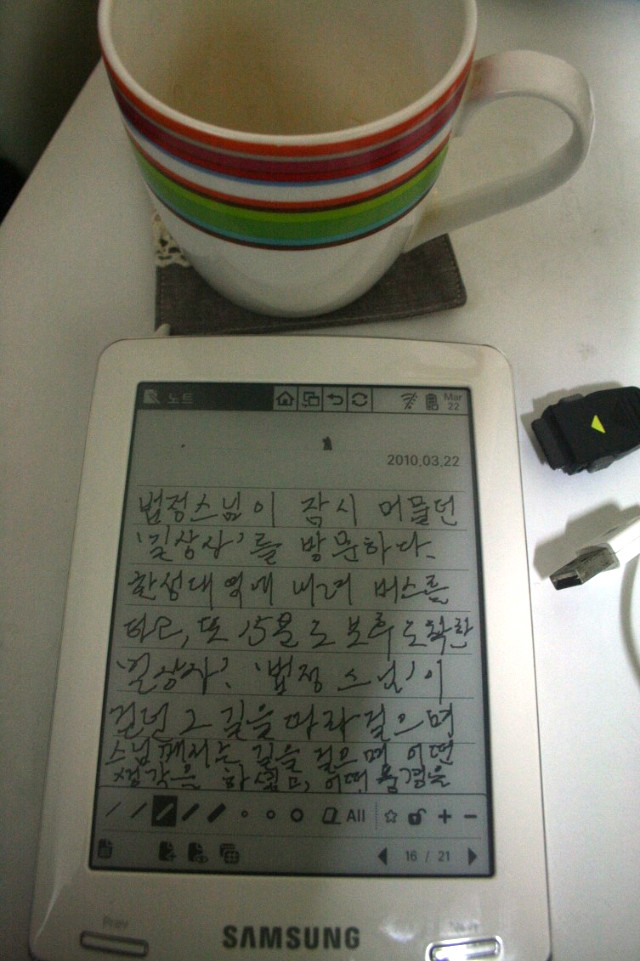 노트
Mar
22
2010.03.22
법정스님이 잠시 머물던
'길상사'를 방문하다.
한성대역에 내려 버스를
타고, 또 15분 도보후 도착한
'길상사'. '법정 스님'이
걸던 그 길을 따라 걸으며
스님께서는 길을 걸으며 어떤
생각을 하셨고, 어떤 풍경을
All
16 / 21
Prev
Next
SAMSUNG